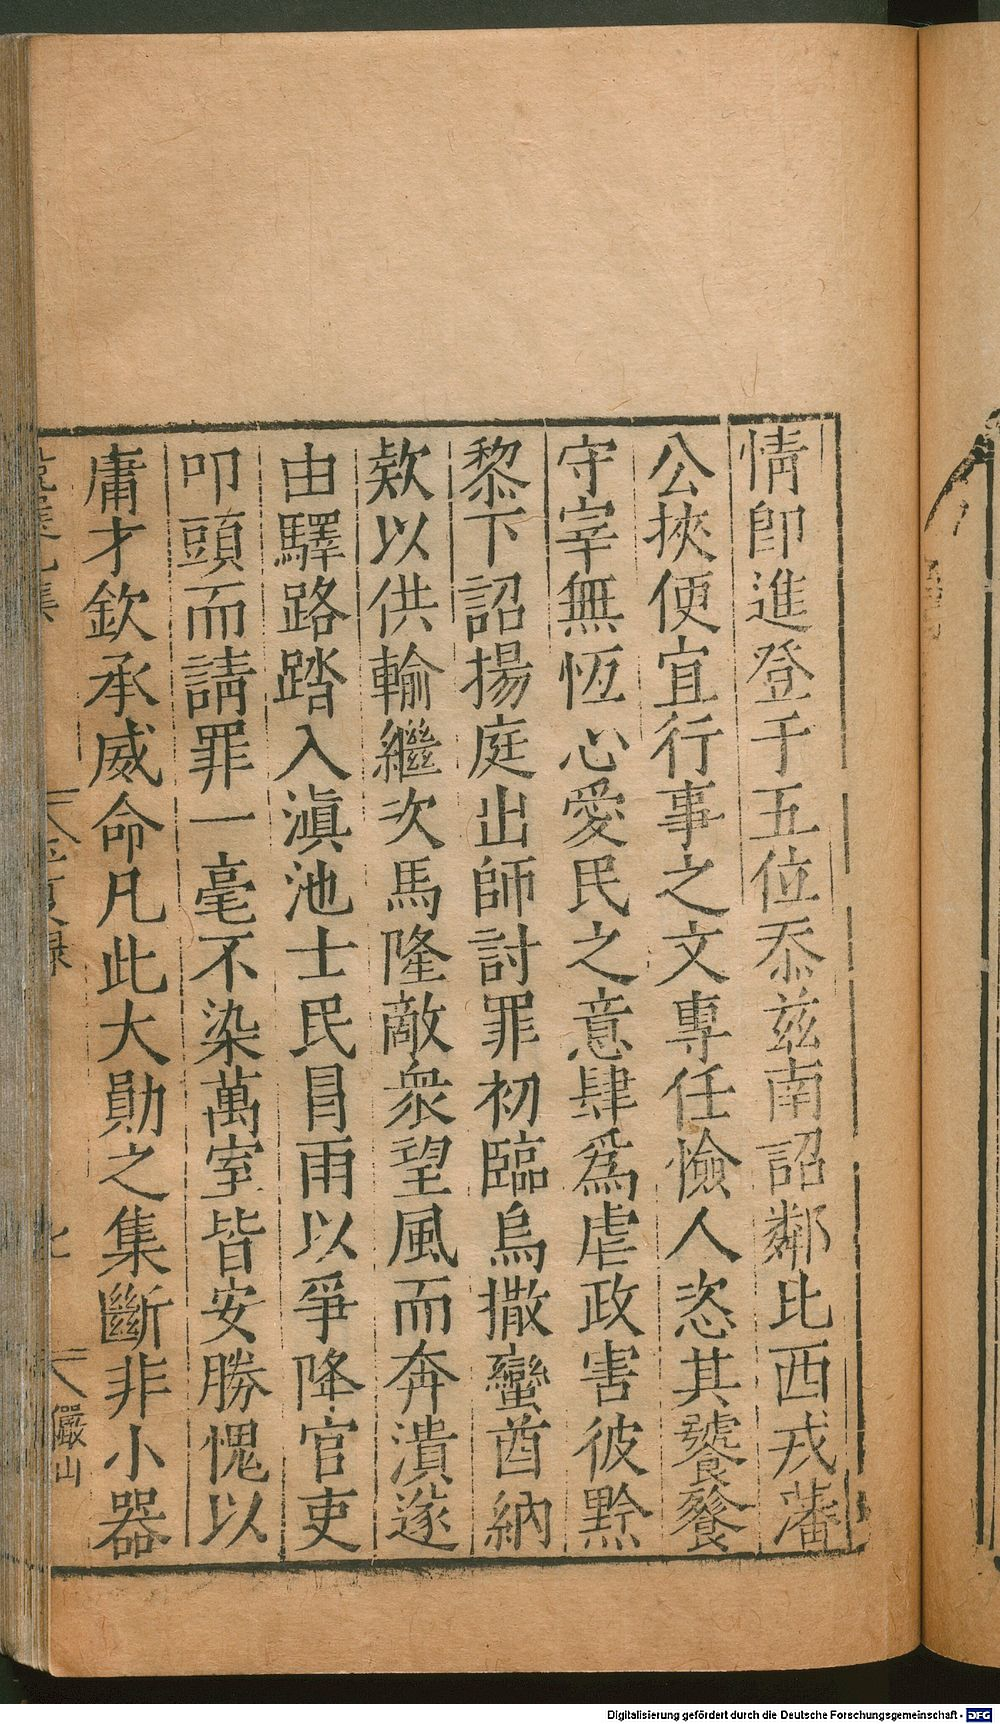 情即進登于五位忝兹南詔鄰比西戎藩
公挾便宜行事之文專任憸人恣其饕餮
守宰無恆心愛民之意肆爲虐政害彼黔
黎下詔揚庭出師討罪初臨烏撒蠻酋納
欵以供輸繼次馬隆敵衆望風而奔潰遂
由驛路踏入滇池士民冐雨以爭降官吏
叩頭而請罪一毫不染萬室皆安勝愧以
庸才欽承威命凡此大勛之集斷非小器
儼山
Digitalisierung gefördert durch die Deutsche Forschungsgemeinschaft - DFG